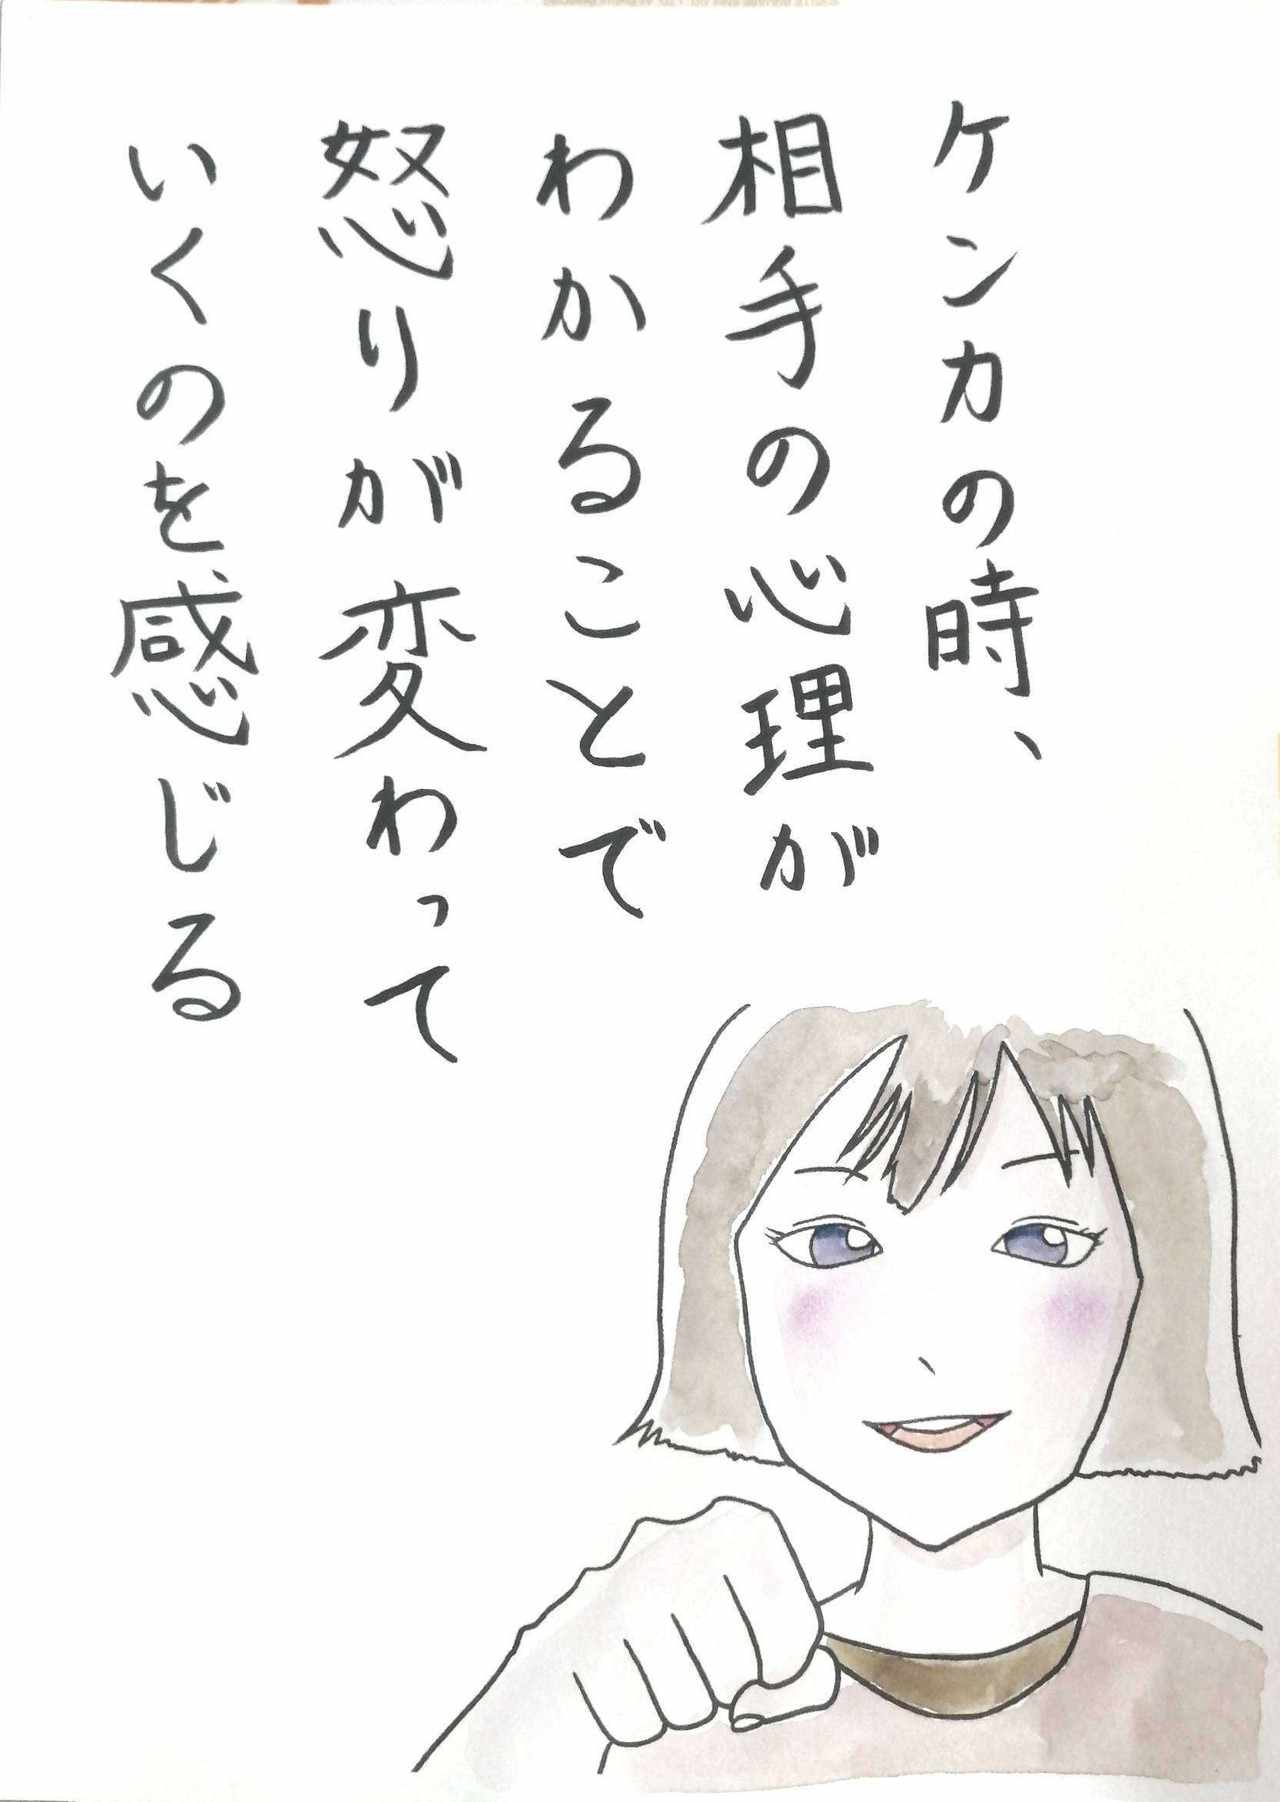 ケンカの時、
相手の心理が
わかることで
怒りが変わって
いくのを感じる